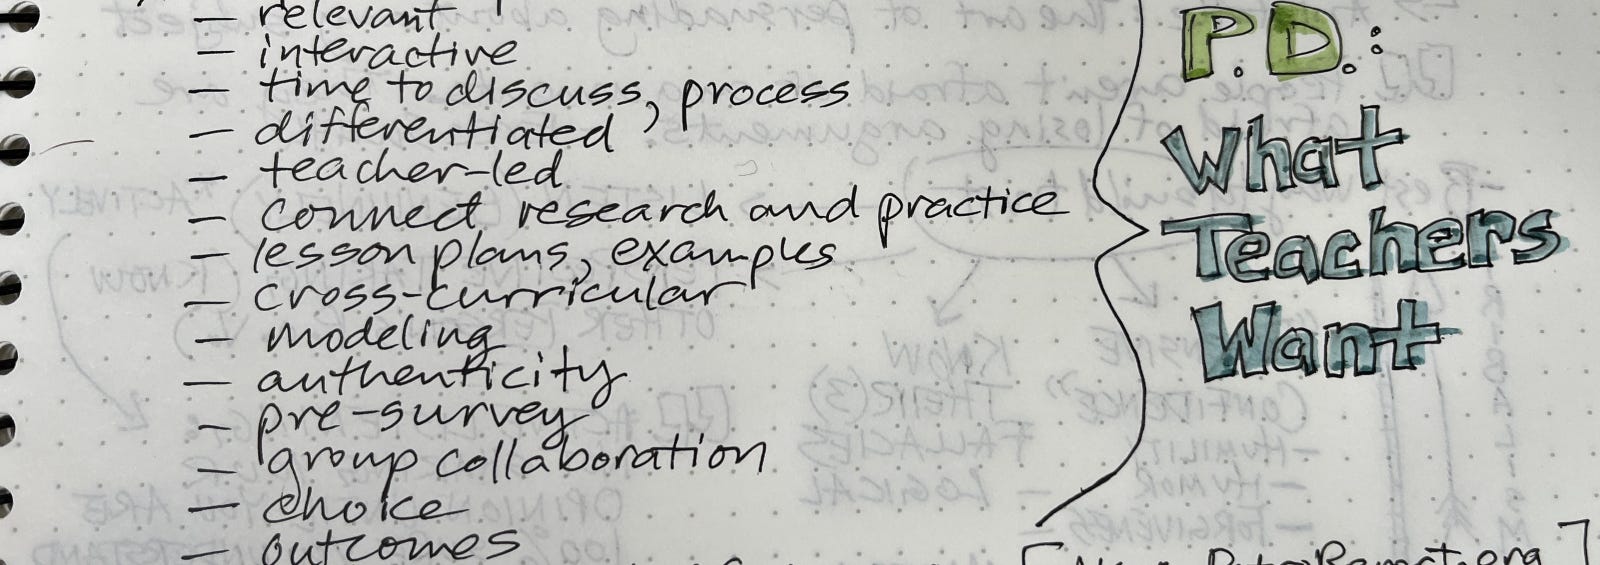 – relevant
– interactive
– time to discuss, process
– differentiated
– teacher-led
– connect research and practice
– lesson plans, examples
– cross-curricular
– modeling
– authenticity
– pre-survey
– group collaboration
– choice
– outcomes
P.D.:
What
Teachers
Want